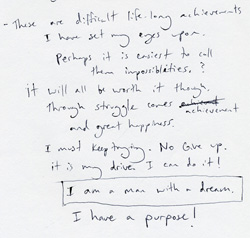 - These are difficult life-long achievements
I have set my eyes upon.
Perhaps it is easiest to call
them impossiblities.?
it will all be worth it though.
Through struggle comes achievement
and great happiness.
I must keep trying. No Give up.
it is my drive. I can do it!
I am a man with a dream.
I have a purpose!